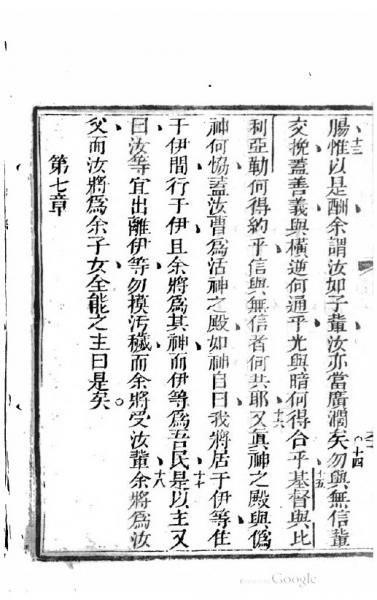 腸惟以是酬余謂汝如子輩汝亦當廣濶矣勿與無信輩
十三
十四
交挽蓋善義與橫逆何通乎光與暗何得合乎基督與比
十五
利亞勒何得約乎信與無信者何共耶又眞神之殿與僞
十六
神何協蓋汝曹爲活神之殿如神自曰我將居于伊等住
于伊間行于伊且余將爲其神而伊等爲吾民是以主又
十七
曰汝等宜出離伊等勿模汚穢而余將受汝輩余將爲汝
十八
父而汝將爲余子女全能之主曰是矣
第七章
Google